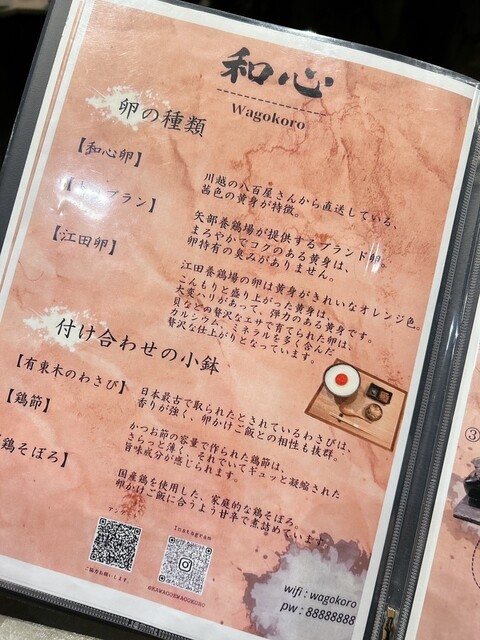 和心
Wagokoro
卵の種類
【和心卵】
川越の八百屋さんから直送している、
茜色の黄身が特徴。
プラン】
矢部養鶏場が提供するブランド卵。
まろやかでコクのある黄身は、
卵特有の臭みがありません。
【江田卵】
江田養鶏場の卵は黄身がきれいなオレンジ色。
こんもりと盛り上がった黄身は、
大変ハリがあって、弾力のある黄身です。
貝などの贅沢なエサで育てられた卵は、
カルシウム、ミネラルを多く含んだ
贅沢な仕上がりとなっています。
付け合わせの小鉢
【有東木のわさび】
日本最古で取られたとされているわさびは、
香りが強く、卵かけご飯との相性も抜群。
【鶏節】
かつお節の容量で作られた鶏節は、
さらっと薄く、それでいてギュッと凝縮された
旨味成分が感じられます。
鶏そぼろ】
国産鶏を使用した、家庭的な鶏そぼろ。
卵かけご飯に合うよう甘辛で煮詰めています。
Instagram
ご協力お願いします。
@KAWAGOEWAGOKORO
wifi : wagokoro
pw : 88888888
③